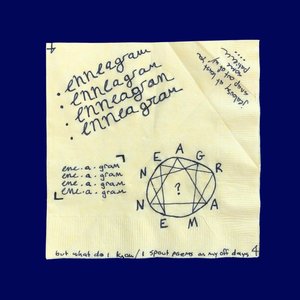 : enneagram
: enneagram
: enneagram
: enneagram
ene.a.gram
ene.a.gram
ene.a.gram
ene.a.gram
ENNEAGRAM
?
but what do I know / I spout poems on my off days
4